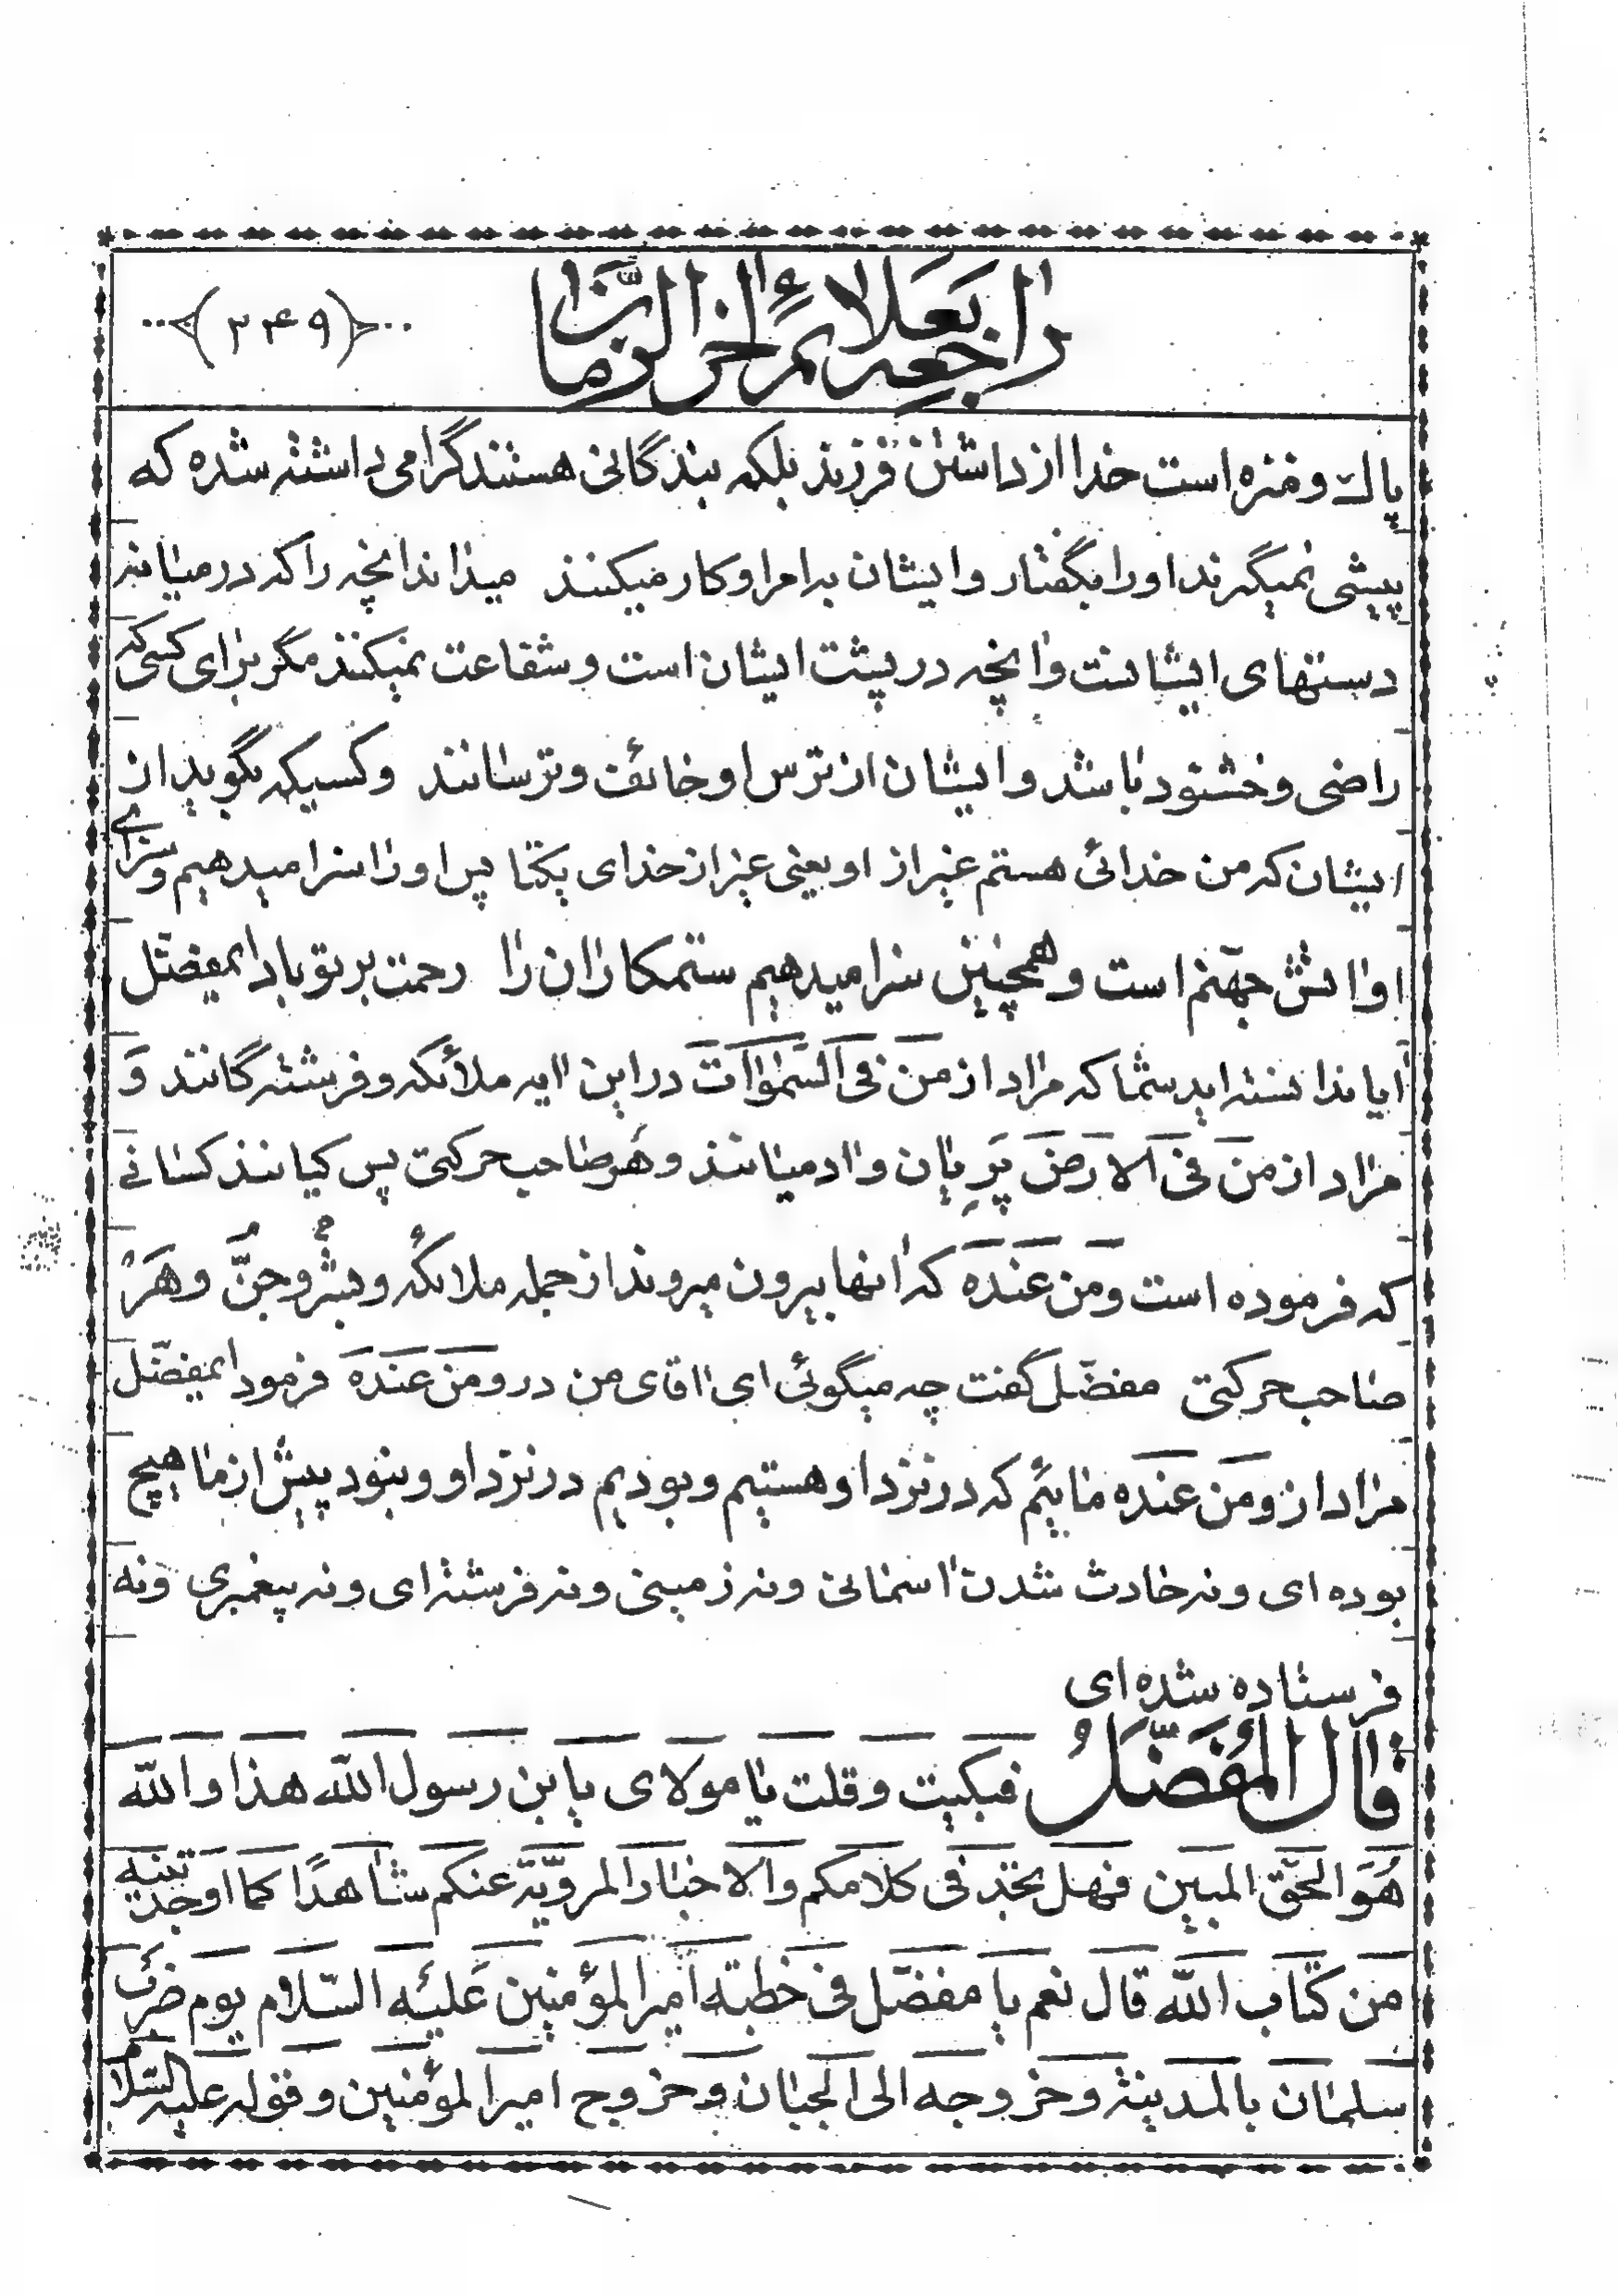 راجعه بعلائم آخر الزمان
(۲۴۹)
پاك و منزه است خدا از داشتن فرزند بلکه بندگانی هستند گرامی داشته شده که
پیشی نمیگیرند او را بگفتار و ایشان به امر او کار میکنند میداند آنچه را که در میانه
دستهای ایشانست و آنچه در پشت ایشان است و شفاعت نمیکنند مگر برای کسی که
راضی و خشنود باشد و ایشان از ترس او خائف و ترسانند و کسیکه بگوید از
ایشان که من خدائی هستم غیر از او یعنی غیر از خدای یکتا پس او را سزا میدهیم و سزای
او آتش جهنّم است و همچنین سزا میدهیم ستمکاران را رحمت بر تو باد ایمفضّل
آیا ندانسته اید شما که مراد از من فی السّموات در این آیه ملائکه و فرشته گانند وَ
مراد از من فی الارض پَرِیان و آدمیانند و هَر صاحب حرکتی پس کیانند کسانی
که فرموده است و من عنده که آنها بیرون میروند از جمله ملائکه و بشر و جنّ و هَرْ
صاحب حرکتی مفضّل گفت چه میگوئی ای آقای من در و من عنده فرمود ایمفضّل
مراد از و من عنده مائیم که در نزد او هستیم و بودیم در نزد او و نبود پیش از ما هیچ
بوده ای و نه حادث شدن آسمانی و نه زمینی و نه فرشته ای و نه پیغمبری و نه
فرستاده شده ای
قال المُفَضّلُ فبکیت و قلت یا مولای یا بن رسول الله هذا و الله
هُوَ الحقّ المبین فهل تجد فی کلامکم و الاخبار المرویّة عنکم شاهدًا کما اوجدتنیه
من کتاب الله قال نعم یا مفضّل فی خطبة امیر المؤمنین علیه السّلام یوم ضرب
سلمان بالمدینة و خروجه الی الجبان و خروج امیر المؤمنین و قوله علیه السّلام